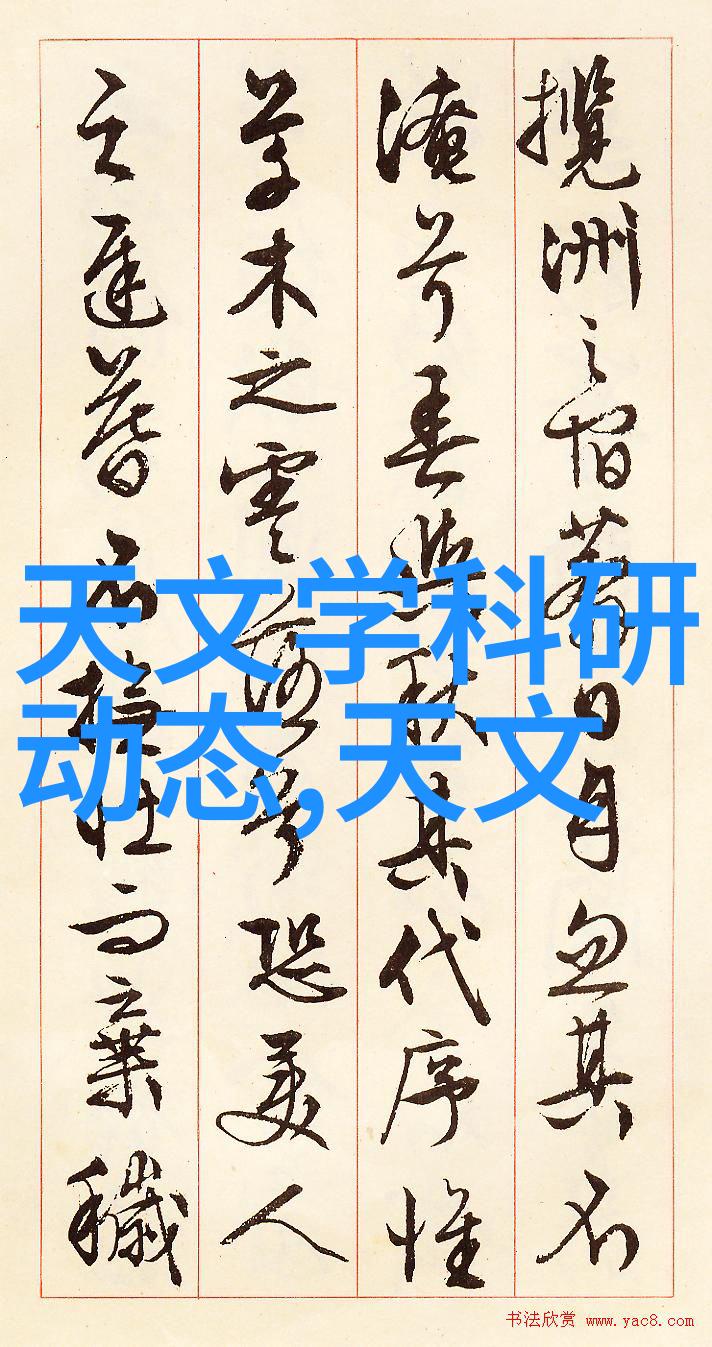 攬洲之宿莽日月忽其不
淹兮春與秋其代序惟
草木之零落兮恐美人
之遲暮不撫壯而棄穢
天文学科研
动态,天文
书法欣赏 www.yac8.com